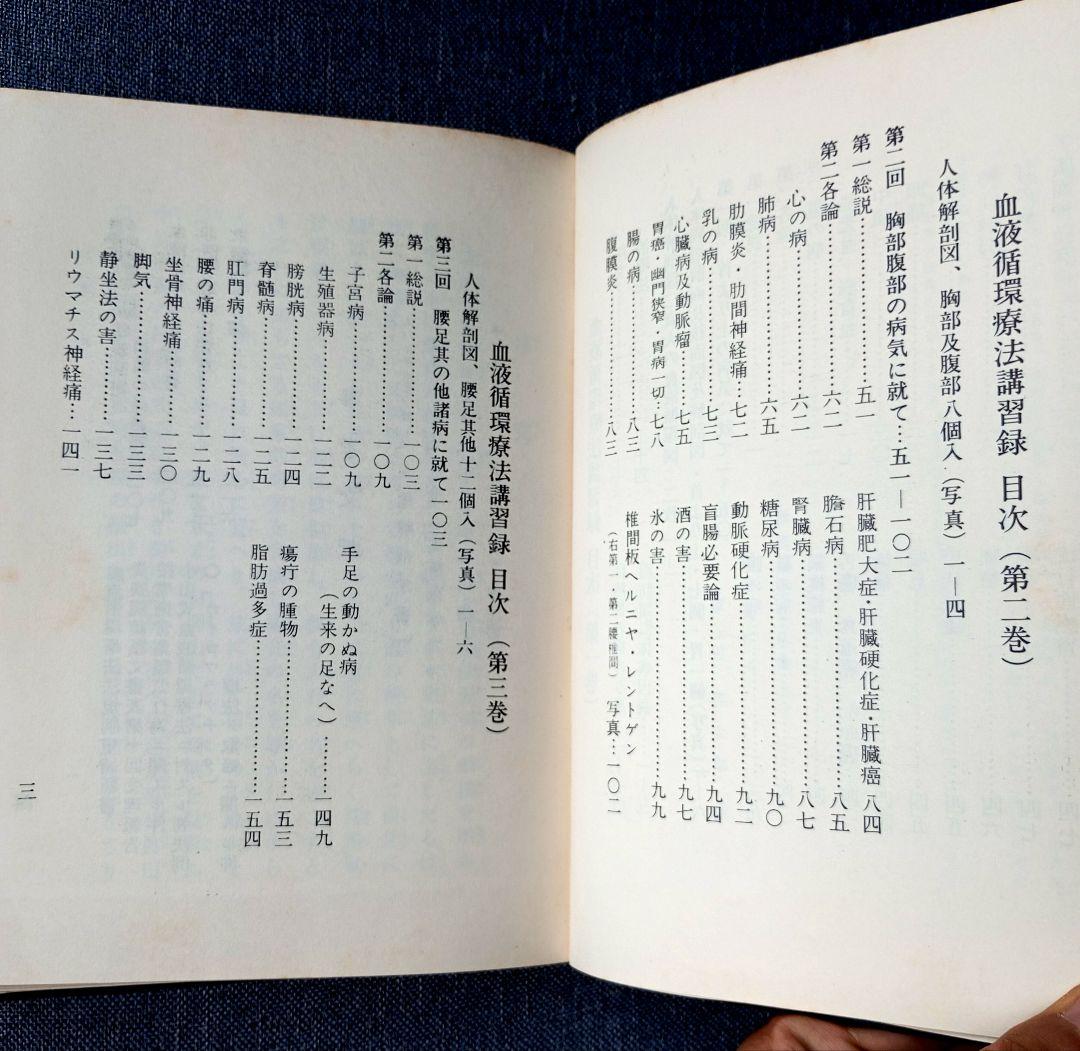 血液循環療法講習録 目次（第二巻）
人体解剖図、胸部及腹部八個入（写真）一―四
第二回 胸部腹部の病気に就て…五一―一〇二
第一総説………………五一
第二各論………………六二
心の病………………六二
肺病………………六五
肋膜炎・肋間神経痛…七二
乳の病………………七三
心臓病及動脈瘤……七五
胃癌・幽門狭窄・胃病一切…七八
腸の病………………八三
腹膜炎………………八三
肝臓肥大症・肝臓硬化症・肝臓癌 八四
膽石病………………八五
腎臓病………………八七
糖尿病………………九〇
動脈硬化症…………九二
盲腸必要論…………九四
酒の害………………九七
氷の害………………九九
椎間板ヘルニヤ・レントゲン
（右第一・第二腰椎間）写真…一〇二
血液循環療法講習録 目次（第三巻）
人体解剖図、腰足其他十二個入（写真）一―六
第三回 腰足其の他諸病に就て一〇三
第一総説………………一〇三
第二各論………………一〇九
子宮病………………一〇九
生殖器病……………一二二
膀胱病………………一二四
脊髄病………………一二五
肛門病………………一二八
腰の痛………………一二九
坐骨神経痛…………一三〇
脚気………………一三三
静坐法の害…………一三七
リウマチス神経痛…一四一
手足の動かぬ病
（生来の足なへ）……一四九
瘍疔の腫物…………一五三
脂肪過多症…………一五四
三